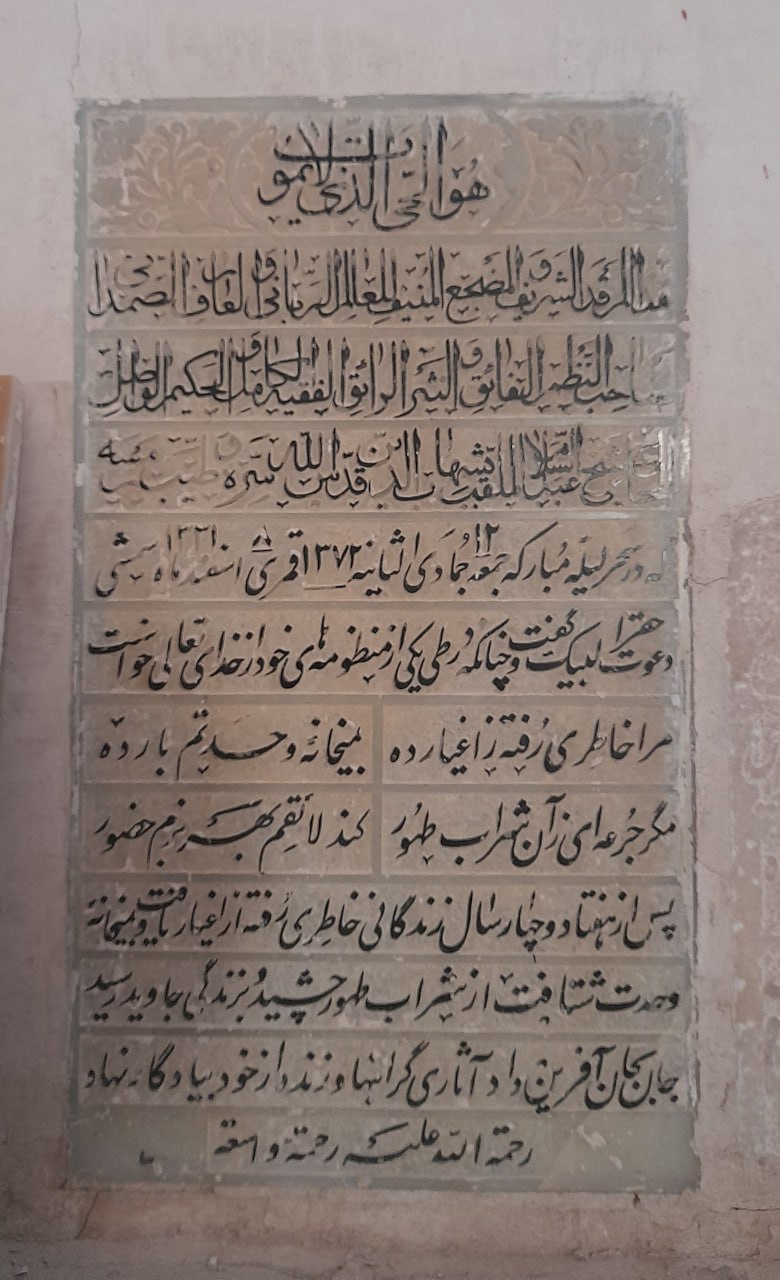 هو الحی الذی لایموت
هذا المرقد الشریف و المضجع المنیف للعالم الربانی و العارف الصمدانی
صاحب النظم الفائق و النثر الرائق الفقیه الکامل و الحکیم الواصل
الشیخ عبد السلام الملقب بشهاب الدین قدس الله سره و طیب رمسه
که در سحر لیله مبارکه جمعه ۱۲ جمادی الثانیه ۱۳۷۲ قمری ۸ اسفند ماه ۱۳۳۱ شمسی
دعوت حق را لبیک گفت و چنانکه در طی یکی از منظومه های خود از خدای تعالی خواست
مرا خاطری رفته ز اغیار ده بمیخانه وحدتم بار ده
مگر جرعه ای زآن شراب طهور کند لائقم بهر بزم حضور
پس از هفتاد و چهار سال زندگانی خاطری رفته از اغیار یافت و بمیخانه
وحدت شتافت از شراب طهور چشید و بزندگی جاوید رسید
جان بجان آفرین داد و آثاری گرانبها و زنده از خود بیادگار نهاد
رحمة الله علیه رحمة واسعة